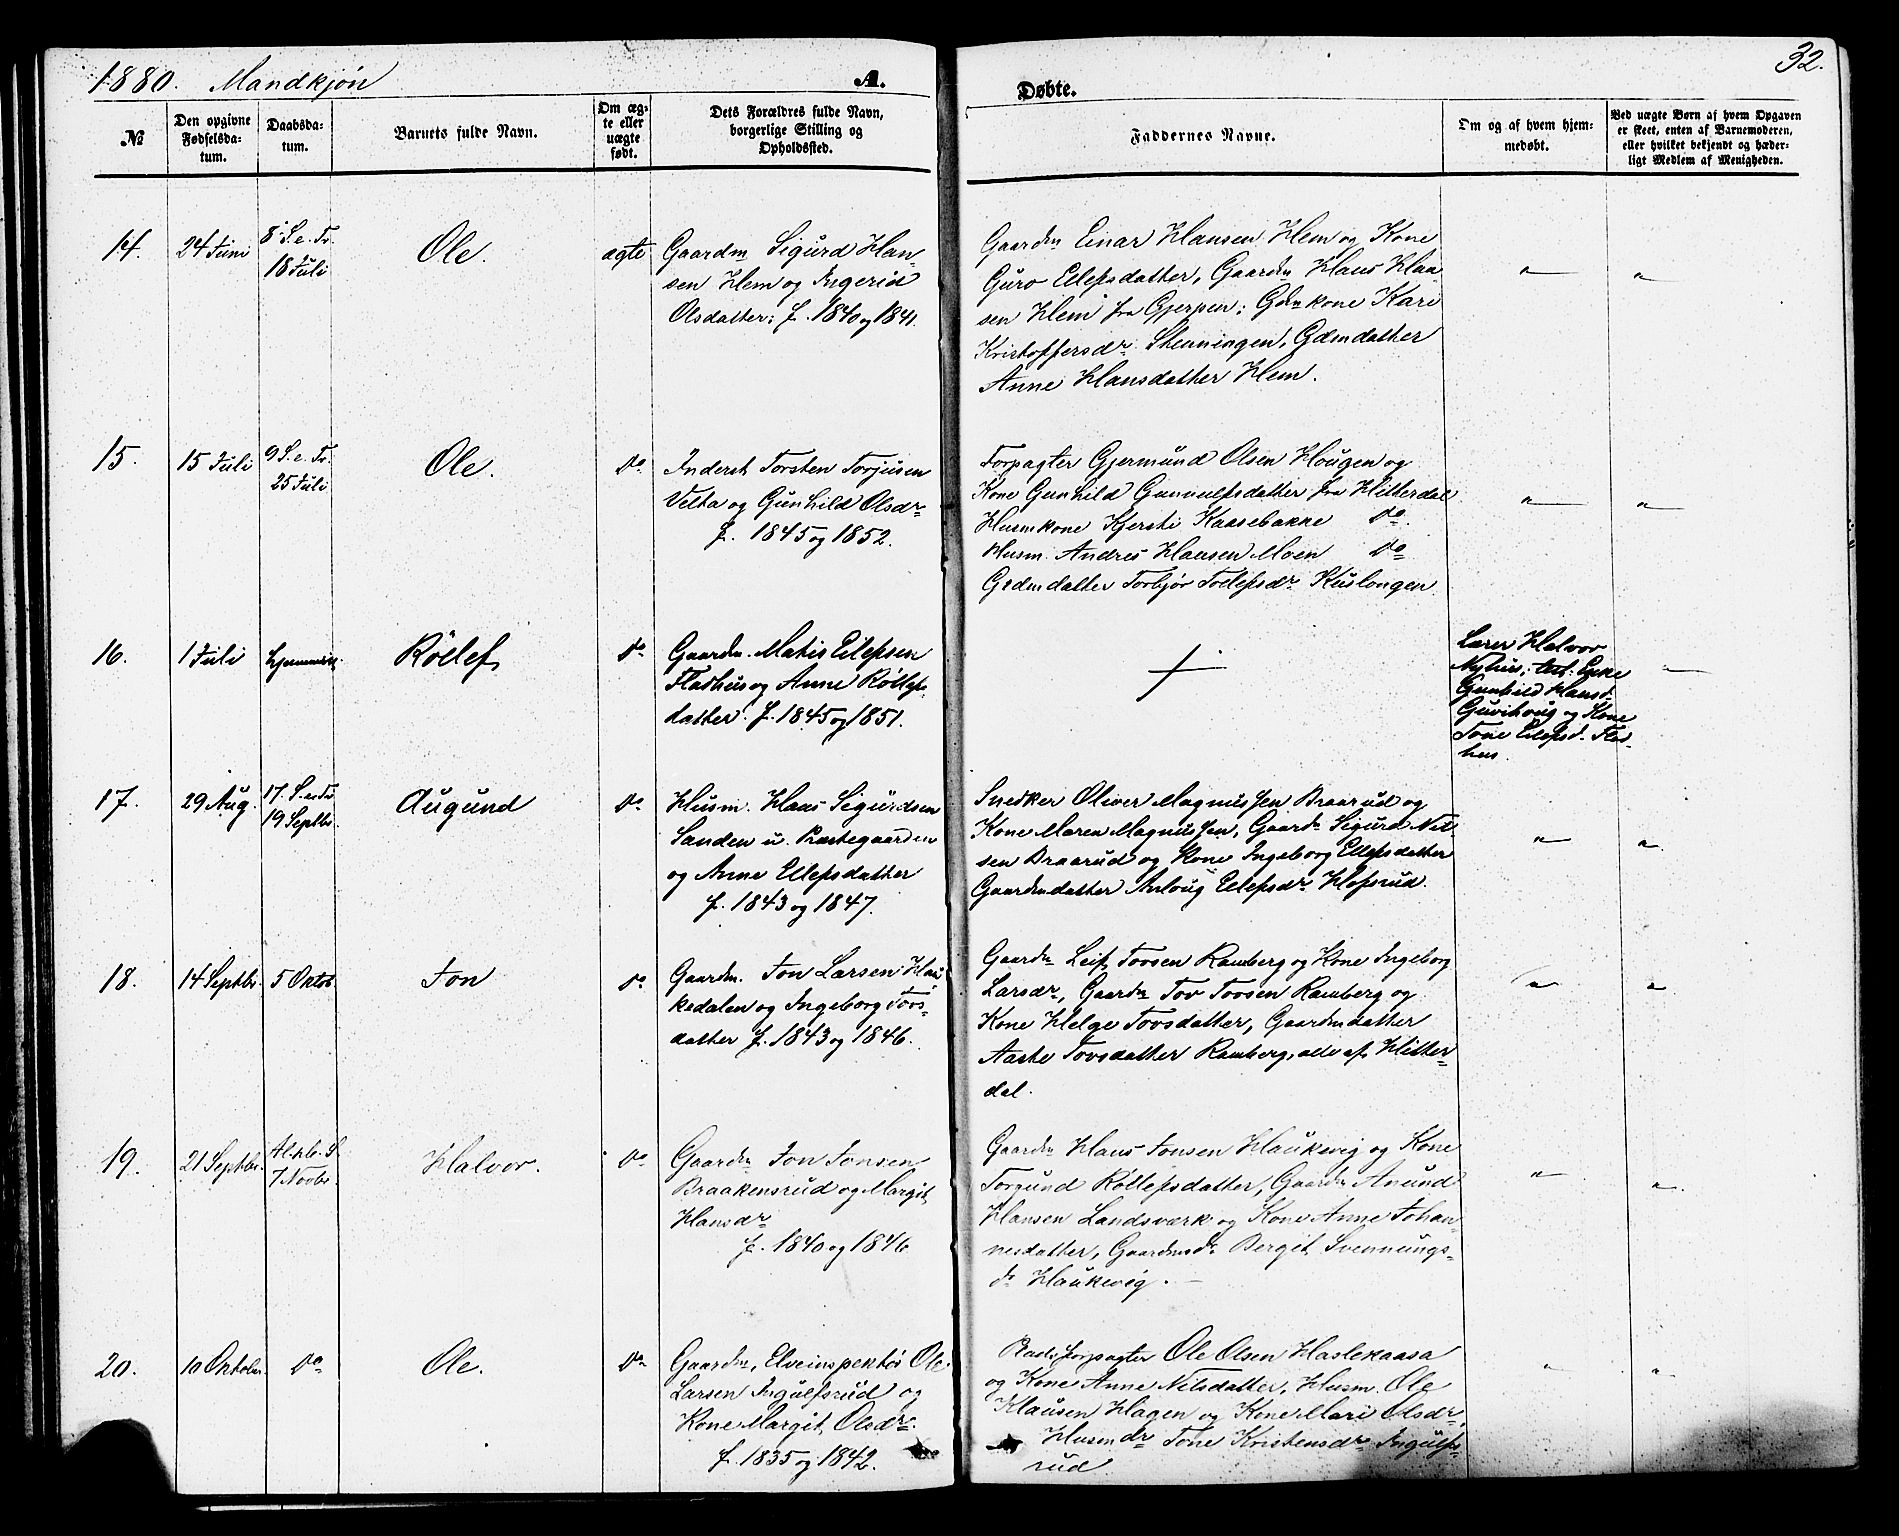 1880. Mandkjøn
A.
Døbte.
32.
№
Den opgivne Fødselsda-tum.
Daabsda-tum.
Barnets fulde Navn.
Om æg-te eller uægte født.
Dets Forældres fulde Navn, borgerlige Stilling og Opholdssted.
Faddernes Navne.
Om og af hvem hjem-medøbt.
Ved uægte Børn af hvem Opgaven er skeet, enten af Barnemoderen, eller hvilket bekjendt og hæder-ligt Medlem af Menigheden.
14.
24 Juni
8 S. e. Tr.
18 Juli
Ole.
ægte
Gaardm Sigurd Han-
sen Hem og Ingerid
Olsdatter; f. 1840 og 1841.
Gaardm Einar Hansen Hem og Kone
Guro Ellefsdatter, Gaardm Hans Han
sen Hem fra Gjerpen; Gdmkone Kari
Kristoffersdr. Gdmdatter
Anne Hansdatter Hem.
15.
15 Juli
9 S. e. Tr.
25 Juli
Ole.
do
Inderst Torsten Torjusen
Velta og Gunhild Olsdr
f. 1845 og 1852.
Forpagter Gjermund Olsen Hougen og
Kone Gunhild Gunnulfsdatter fra Hitterdal
Husmkone Kjersti Kaasebakke do.
Husm. Andres Hansen Moen do
Grdmdatter Torbjør Toelefsdr Kuslongen
16.
1 Juli
hjemme
Röllef
do
Gaardm. Matis Eilefsen
Flathus og Anne Röllefs
datter. f. 1845 og 1851.
+
Lærer Halvor
Nyhus; test: Enke
Gunhild Hansd.
og Kone
Tone Eilefsd. Flat-
hus.
17.
29 Aug.
17. S. e. Tr
19 Septbr.
Augund
do
Husm. Hans Sigurdsen
Sanden u. Præstegaarden
og Anne Ellefsdatter
f. 1843 og 1847.
Snedker Oliver Magnussen Braarud og
Kone Maren Magnussen, Gaardm Sigurd Nil
sen Braarud og Kone Ingeborg Ellefsdatter
Gaardmdatter Anloug Eilefsdr Hofsrud.
18.
14 Septbr.
5 Oktob
Jon
do
Gaardm. Jon Larsen Hau
kedalen og Ingeborg Tovs-
datter f. 1843 og 1846.
Gaardm Leif Tovsen Ramberg og Kone Ingeborg
Larsdr, Gaardm Tov Tovsen Ramberg og
Kone Helge Tovsdatter, Gaardmdatter
Aaste Tovsdatter Ramberg, alle af Hitter=
dal.
19.
21 Septbr.
Alleh. S
7 Novbr.
Halvor.
do
Gaardm Jon Jonsen
Braakensrud og Margit
Hansdr
f. 1840 og 1846
Gaardm Hans Jonsen Haukevig og Kone
Torgund Röllefsdatter, Gaardm Anund
Hansen Landsværk og Kone Anne Johan-
nesdatter, Gaardmsdr Bergit Svennungs-
dr Haukevig.
20.
10 Oktober
do
Ole.
do
Gaardm, Elveinspektør Ole
Larsen Ingulfsrud og
Kone Margit Olsdr.
f. 1835 og 1842.
forpagter Ole Olsen Haslekaasa
og Kone Anne Nilsdatter, Husm. Ole
Klausen Hagen og Kone Mari Olsdr.
Husmdr Tone Kristensdr Ingulfs-
rud